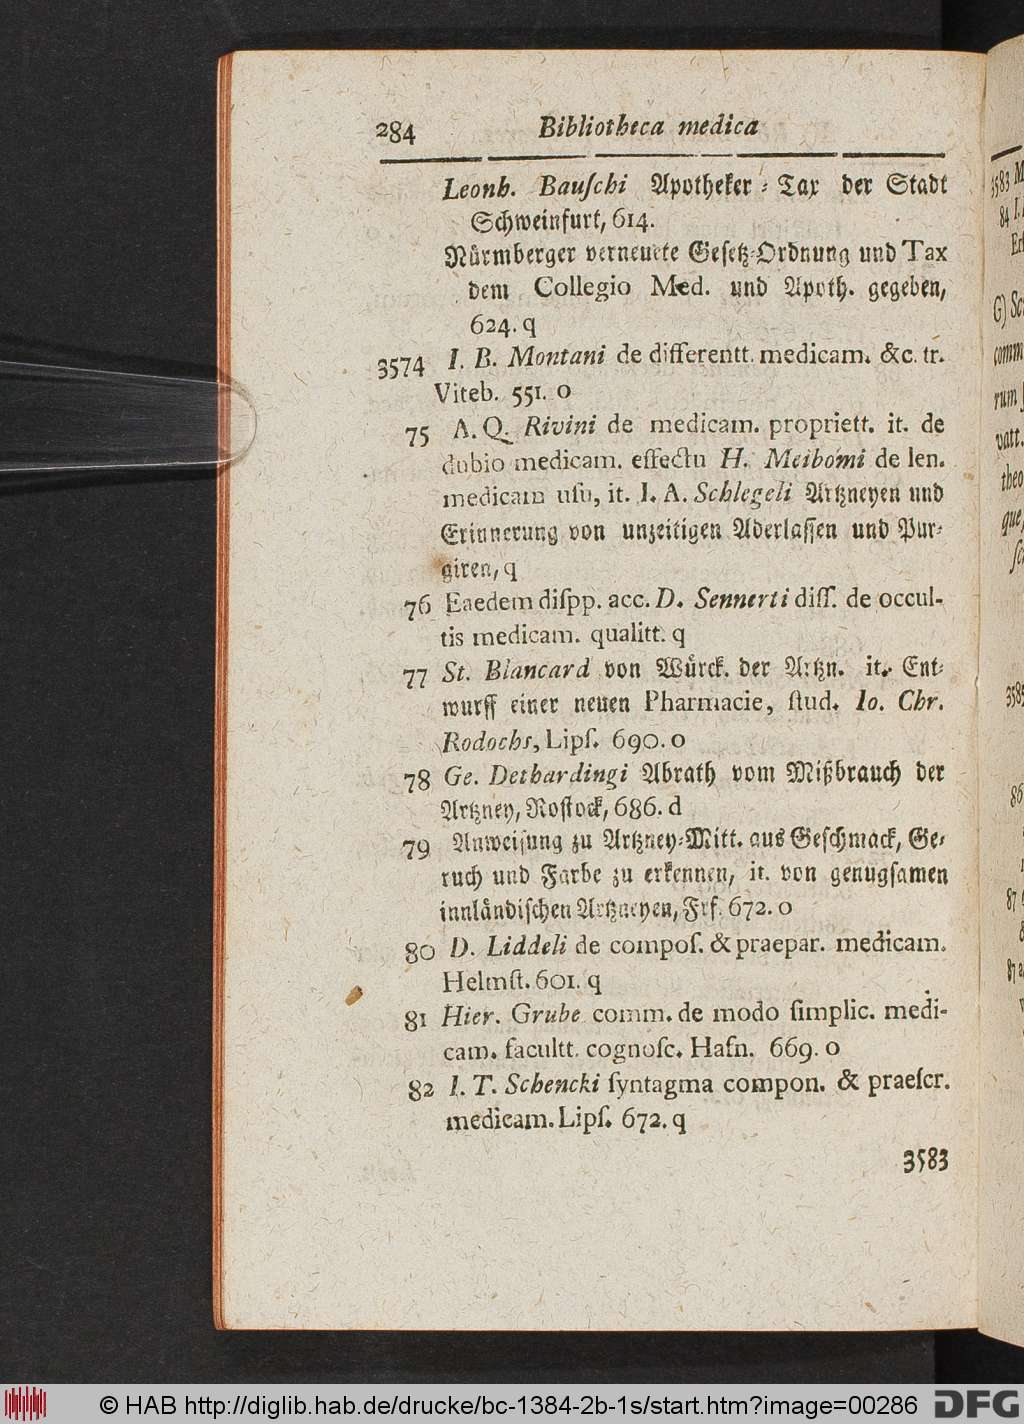 284 Bibliotheca medica
Leonh. Bauſchi Apotheker-Tax der Stadt
Schweinfurt, 614.
Nürmberger verneuete Geſetz-Ordnung und Tax
dem Collegio Med. und Apoth. gegeben,
624. q
3574 I. B. Montani de differentt. medicam. &c. tr.
Viteb. 551. o
75 A. Q. Rivini de medicam. propriett. it. de
dubio medicam. effectu H. Meibomi de len.
medicam uſu, it. I. A. Schlegeli Artzneyen und
Erinnerung von unzeitigen Aderlaſſen und Pur-
giren, q
76 Eaedem diſpp. acc. D. Sennerti diſſ. de occul-
tis medicam. qualitt. q
77 St. Blancard von Würck. der Artzn. it. Ent-
wurff einer neuen Pharmacie, ſtud. Io. Chr.
Rodochs, Lipſ. 690. o
78 Ge. Dethardingi Abrath vom Mißbrauch der
Artzney, Roſtock, 686. d
79 Anweiſung zu Artzney-Mitt. aus Geſchmack, Ge-
ruch und Farbe zu erkennen, it. von genugſamen
innländiſchen Artzneyen, Frf. 672. o
80 D. Liddeli de compoſ. & praepar. medicam.
Helmſt. 601. q
81 Hier. Grube comm. de modo ſimplic. medi-
cam. facultt. cognoſc. Hafn. 669. o
82 I. T. Schencki ſyntagma compon. & praeſcr.
medicam. Lipſ. 672. q
3583
© HAB http://diglib.hab.de/drucke/bc-1384-2b-1s/start.htm?image=00286 DFG